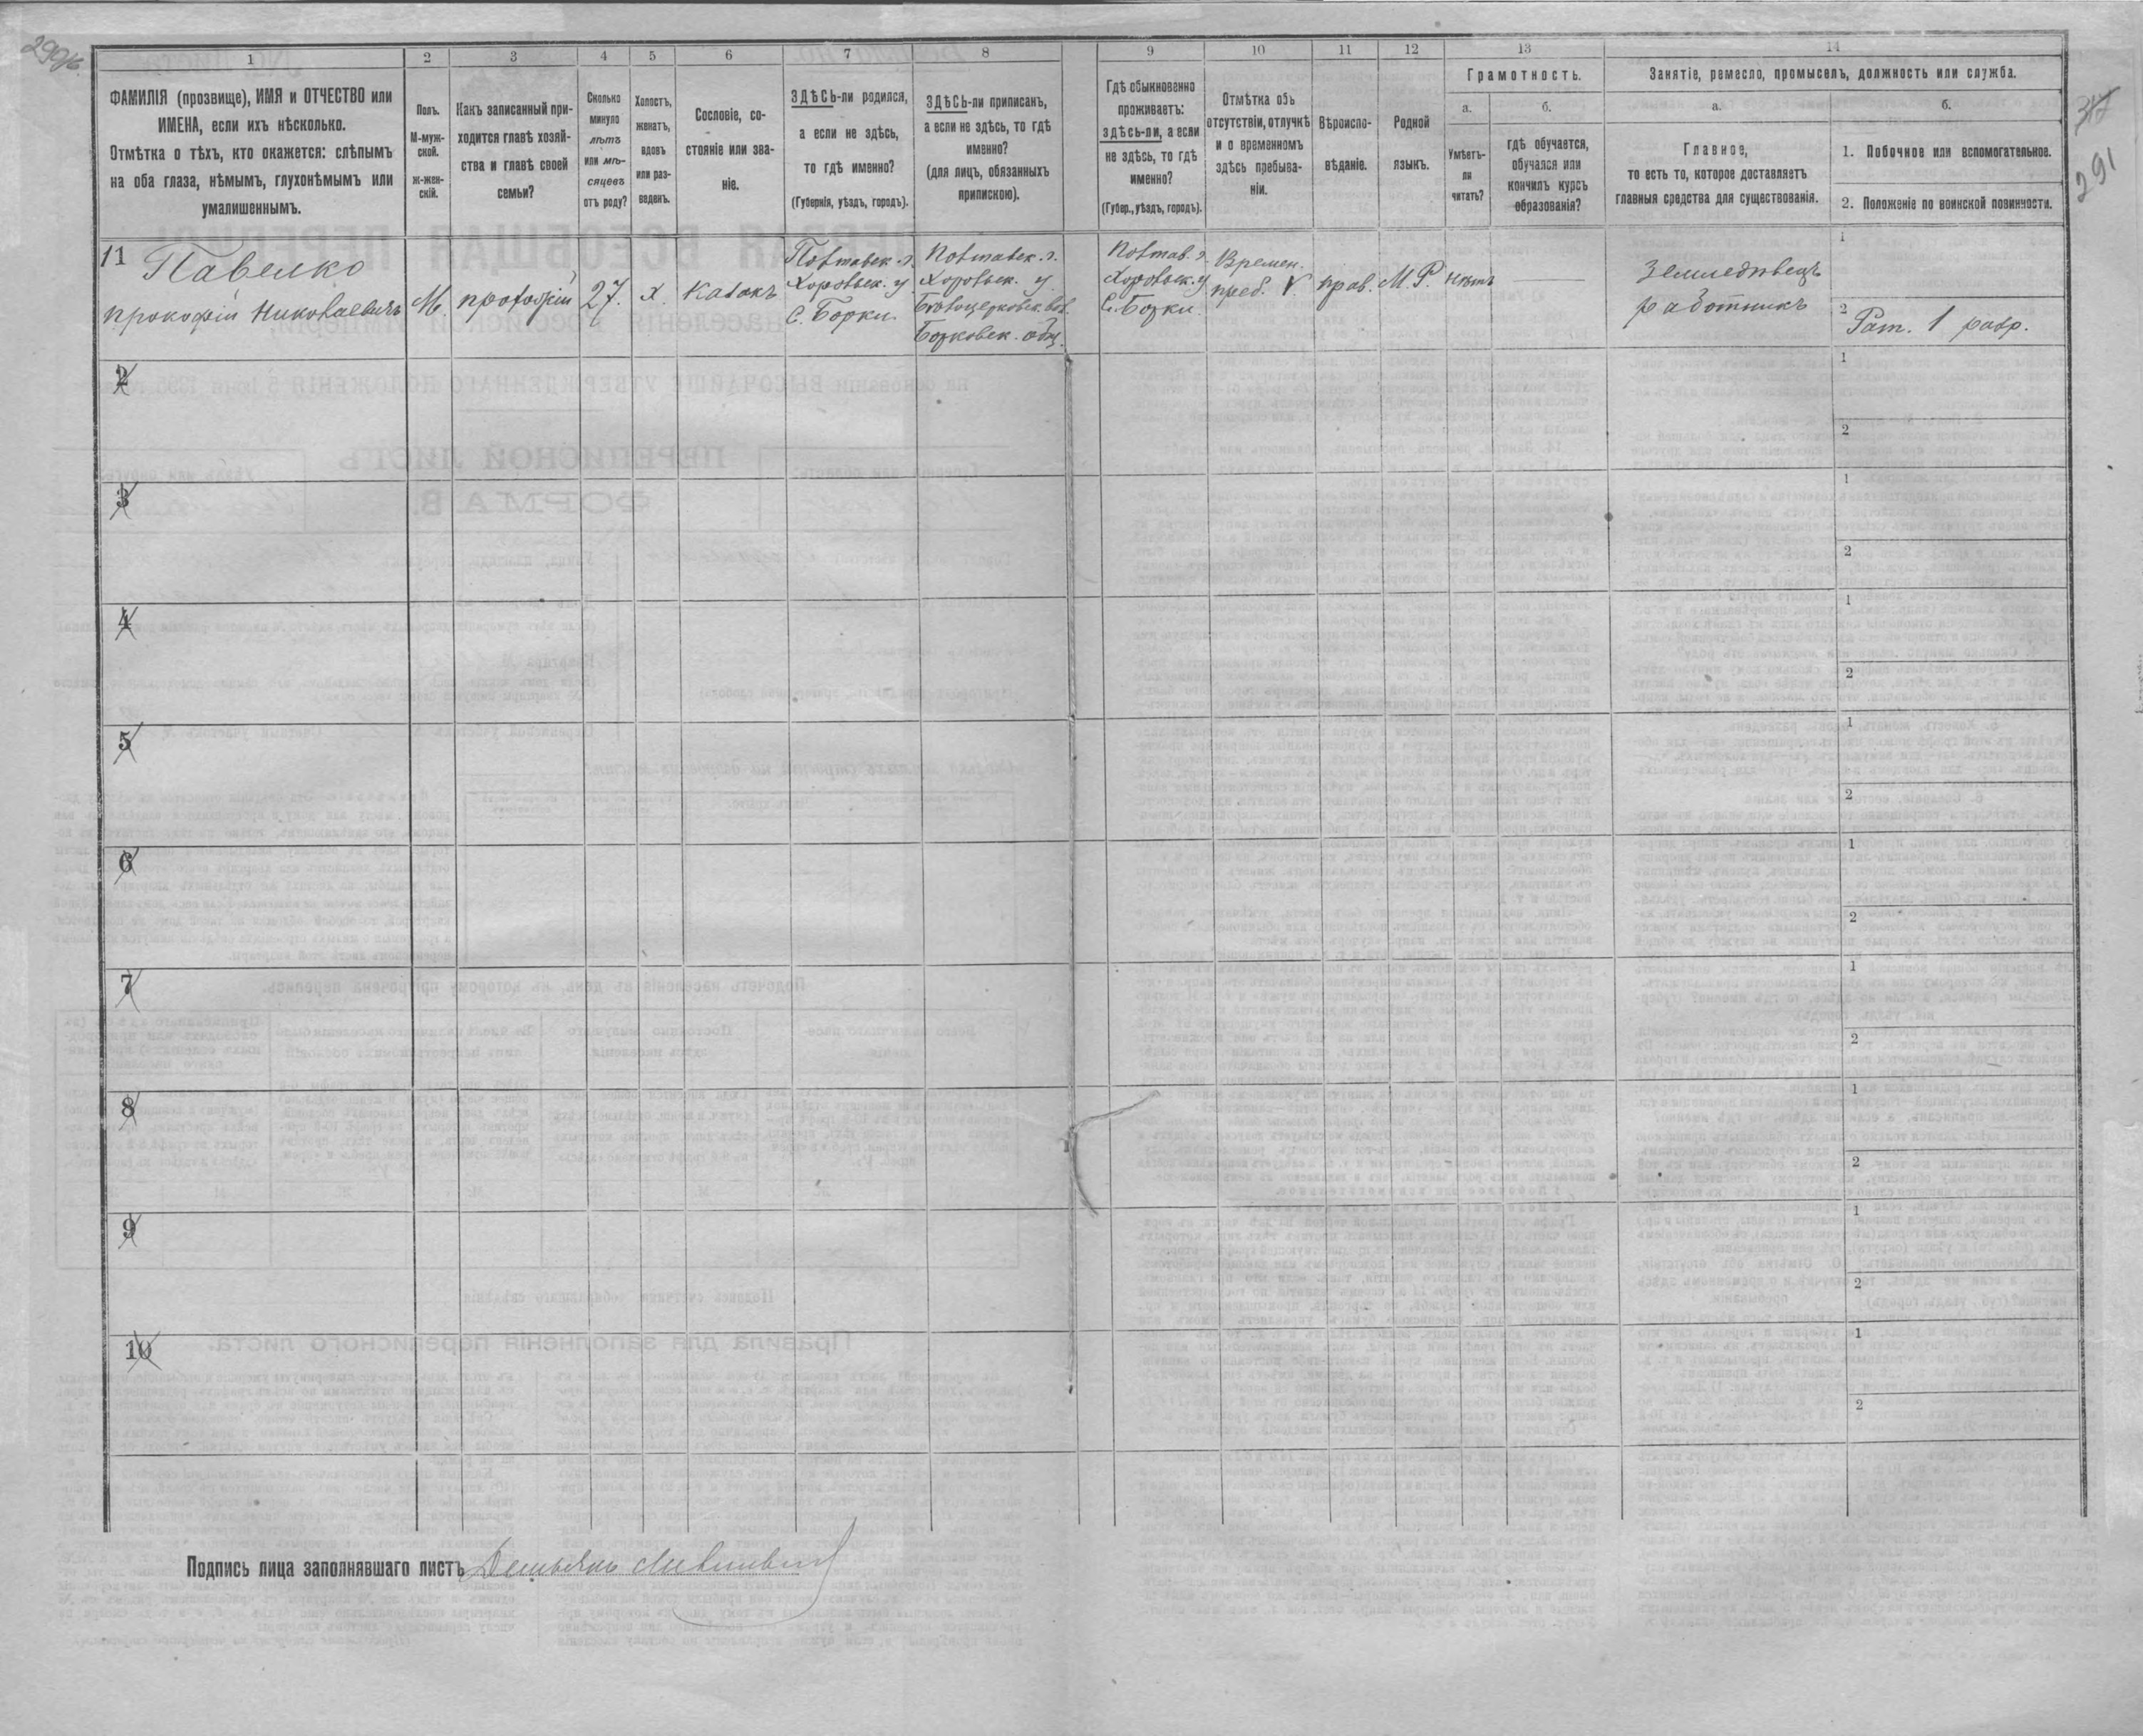 290об.
317
291
1
2
3
4
5
6
7
8
9
10
11
12
13
14
ФАМИЛІЯ (прозвище), ИМЯ и ОТЧЕСТВО или
ИМЕНА, если ихъ нѣсколько.
Отмѣтка о тѣхъ, кто окажется: слѣпымъ
на оба глаза, нѣмымъ, глухонѣмымъ или
умалишеннымъ.
Полъ.
М-муж-
ской.
ж-жен-
скій.
Какъ записанный при-
ходится главѣ хозяй-
ства и главѣ своей
семьи?
Сколько
минуло
лѣтъ
или мѣ-
сяцевъ
отъ роду?
Холостъ,
женатъ,
вдовъ
или раз-
веденъ.
Сословіе, со-
стояніе или зва-
ніе.
ЗДѢСЬ-ли родился,
а если не здѣсь,
то гдѣ именно?
(Губернія, уѣздъ, городъ).
ЗДѢСЬ-ли приписанъ,
а если не здѣсь, то гдѣ
именно?
(для лицъ, обязанныхъ
припискою).
Гдѣ обыкновенно
проживаетъ:
здѣсь-ли, а если
не здѣсь, то гдѣ
именно?
(Губер., уѣздъ, городъ).
Отмѣтка объ
отсутствіи, отлучкѣ
и о временномъ
здѣсь пребыва-
ніи.
Вѣроиспо-
вѣданіе.
Родной
языкъ.
Грамотность.
а.
Умѣетъ-
ли
читать?
б.
гдѣ обучается,
обучался или
кончилъ курсъ
образованія?
Занятіе, ремесло, промыселъ, должность или служба.
а.
Главное,
то есть то, которое доставляетъ
главныя средства для существованія.
б.
1. Побочное или вспомогательное.
2. Положеніе по воинской повинности.
11
Павелко
Прокофій Николаевичъ
М.
27.
х.
Казакъ
Полтавск. г.
Хорольск. у.
С. Борки.
Полтавск. г.
Хорольск. у.
Борковск. общ.
Полтав. г.
Хорольск. у
С. Борки.
Времен.
преб. V.
прав.
М. Р.
нѣтъ
Земледѣлецъ
работникъ
1
2
Рат. 1 разр.
2
1
2
3
1
2
4
1
2
5
1
2
6
1
2
7
1
2
8
1
2
9
1
2
10
1
2
Подпись лица заполнявшаго листъ